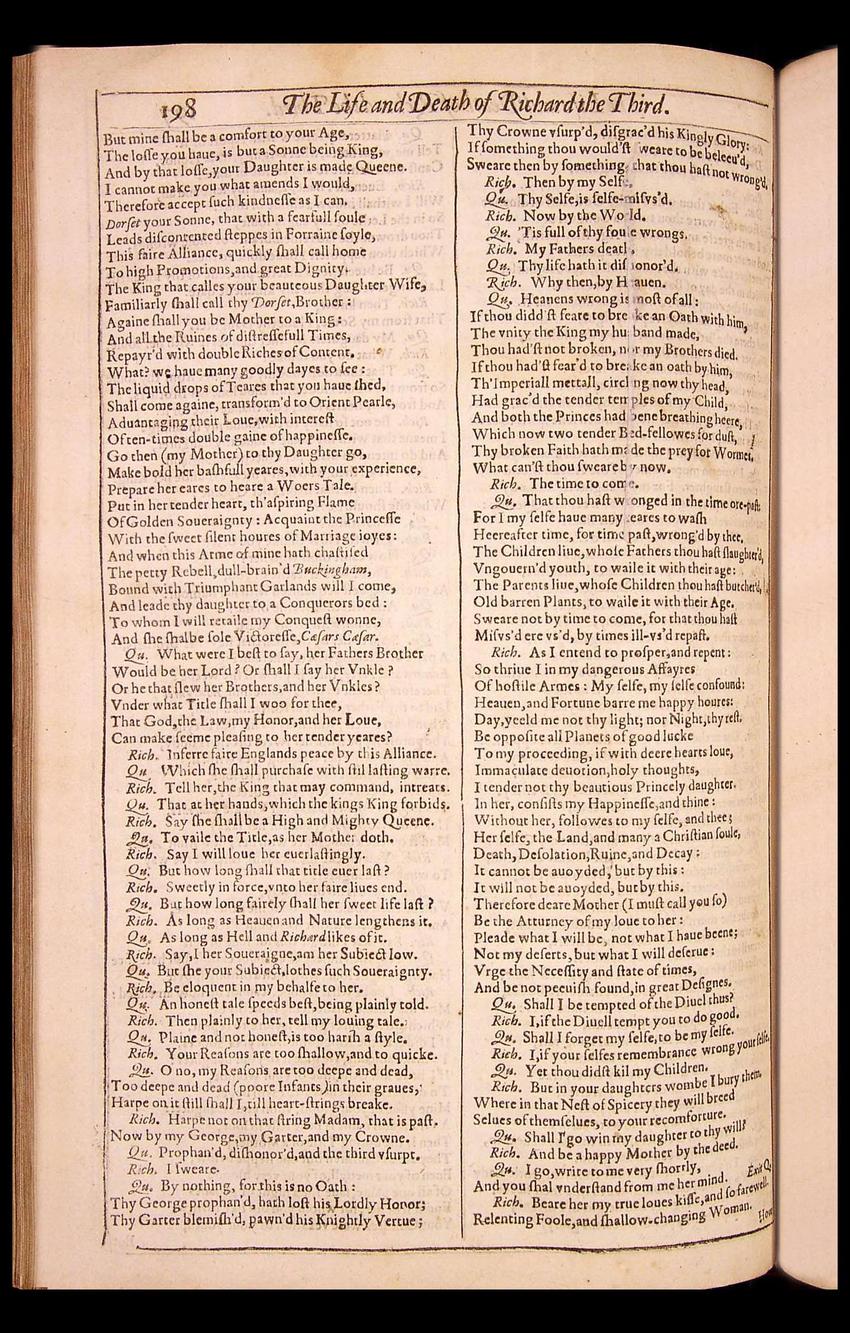 198
The Life and Death of Richard the Third.
But mine ſhall be a comfort to your Age,
The loſſe you haue, is but a Sonne being King,
And by that loſſe, your Daughter is made Queene.
I cannot make you what amends I would,
Therefore accept ſuch kindneſſe as I can.
Dorſet your Sonne, that with a fearfull ſoule
Leads diſcontented ſteppes in Forraine ſoyle,
This faire Alliance, quickly ſhall call home
To high Promotions, and great Dignity.
The King that calles your beauteous Daughter Wife,
Familiarly ſhall call thy Dorſet, Brother:
Againe ſhall you be Mother to a King:
And all the Ruines of diſtreſſefull Times,
Repayr'd with double Riches of Content.
What? we haue many goodly dayes to ſee:
The liquid drops of Teares that you haue ſhed,
Shall come againe, transform'd to Orient Pearle,
Aduantaging their Loue, with intereſt
Often-times double gaine of happineſſe.
Go then (my Mother) to thy Daughter go,
Make bold her baſhfull yeares, with your experience,
Prepare her eares to heare a Woers Tale.
Put in her tender heart, th'aſpiring Flame
Of Golden Soueraignty: Acquaint the Princeſſe
With the ſweet ſilent houres of Marriage ioyes:
And when this Arme of mine hath chaſtiſed
The petty Rebell, dull-brain'd Buckingham,
Bound with Triumphant Garlands will I come,
And leade thy daughter to a Conquerors bed:
To whom I will retaile my Conqueſt wonne,
And ſhe ſhalbe ſole Victoreſſe, Cæſars Cæſar.
Qu. What were I beſt to ſay, her Fathers Brother
Would be her Lord? Or ſhall I ſay her Vnkle?
Or he that ſlew her Brothers, and her Vnkles?
Vnder what Title ſhall I woo for thee,
That God, the Law, my Honor, and her Loue,
Can make ſeeme pleaſing to her tender yeares?
Rich. Inferre faire Englands peace by this Alliance.
Qu. Which ſhe ſhall purchaſe with ſtil laſting warre.
Rich. Tell her, the King that may command, intreats.
Qu. That at her hands, which the kings King forbids.
Rich. Say ſhe ſhall be a High and Mighty Queene.
Qu. To vaile the Title, as her Mother doth.
Rich. Say I will loue her euerlaſtingly.
Qu. But how long ſhall that title euer laſt?
Rich. Sweetly in force, vnto her faire liues end.
Qu. But how long fairely ſhall her ſweet life laſt?
Rich. As long as Heauen and Nature lengthens it.
Qu. As long as Hell and Richard likes of it.
Rich. Say, I her Soueraigne, am her Subiect low.
Qu. But ſhe your Subiect, lothes ſuch Soueraignty.
Rich. Be eloquent in my behalfe to her.
Qu. An honeſt tale ſpeeds beſt, being plainly told.
Rich. Then plainly to her, tell my louing tale.
Qu. Plaine and not honeſt, is too harſh a ſtyle.
Rich. Your Reaſons are too ſhallow, and to quicke.
Qu. O no, my Reaſons are too deepe and dead,
Too deepe and dead (poore Infants) in their graues,
Harpe on it ſtill ſhall I, till heart-ſtrings breake.
Rich. Harpe not on that ſtring Madam, that is paſt.
Now by my George, my Garter, and my Crowne.
Qu. Prophan'd, diſhonor'd, and the third vſurpt.
Rich. I ſweare.
Qu. By nothing, for this is no Oath:
Thy George prophan'd, hath loſt his Lordly Honor;
Thy Garter blemiſh'd, pawn'd his Knightly Vertue;
Thy Crowne vſurp'd, diſgrac'd his Kingly Glory:
If ſomething thou would'ſt ſweare to be beleeu'd,
Sweare then by ſomething, that thou haſt not wrong'd.
Rich. Then by my Selfe.
Qu. Thy Selfe, is ſelfe-miſvs'd.
Rich. Now by the World.
Qu. 'Tis full of thy foule wrongs.
Rich. My Fathers death,
Qu. Thy life hath it diſhonor'd.
Rich. Why then, by Heauen.
Qu. Heauens wrong is moſt of all:
If thou didd'ſt feare to breake an Oath with him,
The vnity the King my husband made,
Thou had'ſt not broken, nor my Brothers died.
If thou had'ſt fear'd to breake an oath by him,
Th'Imperiall mettall, circling now thy head,
Had grac'd the tender temples of my Child,
And both the Princes had bene breathing heere,
Which now two tender Bed-fellowes for duſt,
Thy broken Faith hath made the prey for Wormes.
What can'ſt thou ſweare by now.
Rich. The time to come.
Qu. That thou haſt wronged in the time ore-paſt:
For I my ſelfe haue many teares to waſh
Heereafter time, for time paſt, wrong'd by thee,
The Children liue, whoſe Fathers thou haſt ſlaughter'd,
Vngouern'd youth, to waile it with their age:
The Parents liue, whoſe Children thou haſt butcher'd,
Old barren Plants, to waile it with their Age.
Sweare not by time to come, for that thou haſt
Miſvs'd ere vs'd, by times ill-vs'd repaſt.
Rich. As I entend to proſper, and repent:
So thriue I in my dangerous Affayres
Of hoſtile Armes: My ſelfe, my ſelfe confound:
Heauen, and Fortune barre me happy houres:
Day, yeeld me not thy light; nor Night, thy reſt.
Be oppoſite all Planets of good lucke
To my proceeding, if with deere hearts loue,
Immaculate deuotion, holy thoughts,
I tender not thy beautious Princely daughter.
In her, conſiſts my Happineſſe, and thine:
Without her, followes to my ſelfe, and thee;
Her ſelfe, the Land, and many a Chriſtian ſoule,
Death, Deſolation, Ruine, and Decay:
It cannot be auoyded, but by this:
It will not be auoyded, but by this.
Therefore deare Mother (I muſt call you ſo)
Be the Atturney of my loue to her:
Pleade what I will be, not what I haue beene;
Not my deſerts, but what I will deſerue:
Vrge the Neceſſity and ſtate of times,
And be not peeuiſh found, in great Deſignes.
Qu. Shall I be tempted of the Diuel thus?
Rich. I, if the Diuell tempt you to do good.
Qu. Shall I forget my ſelfe, to be my ſelfe.
Rich. I, if your ſelfes remembrance wrong your ſelfe.
Qu. Yet thou didſt kil my Children.
Rich. But in your daughters wombe I bury them.
Where in that Neſt of Spicery they will breed
Selues of themſelues, to your recomforture.
Qu. Shall I go win my daughter to thy will?
Rich. And be a happy Mother by the deed.
Qu. I go, write to me very ſhortly,
And you ſhal vnderſtand from me her mind. Exit Q.
Rich. Beare her my true loues kiſſe, and ſo farewell.
Relenting Foole, and ſhallow-changing Woman.
How